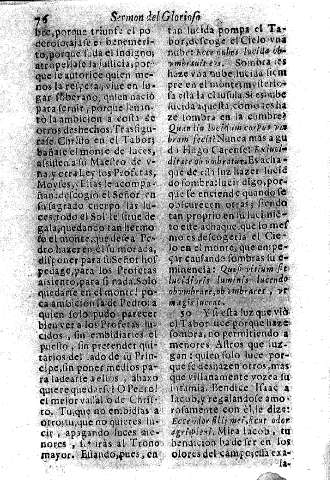 76 Sermon del Glorioso
bre, porque triumfe el po
deroso, aja se el benemeri-
to, porque suba el indigno,
atropellase la justicia, por-
que le autorice quien me-
nos la respeta, viue en lu-
gar soberano, quien naciò
para seruir, porque leuan-
tò la ambicion a costa de
otros deshechos. Trasfigu-
rase Christo en el Tabor,
bañase el monte de luces,
assisten a su Maestro de v-
na, y otra Ley los Profetas,
Moyses, Elias le acompa-
ñan, descogiò el Señor en
su sagrado cuerpo las lu-
ces, todo el Sol le sirue de
gala, quedando tan hermo
so el monte, que desea Pe-
dro hazer en èl su morada,
disponer para su Señor hos
pedage, para los Profetas
assiento, para si nada. Solo
quedarse en el monte! po-
ca ambicion la de Pedro: a
quien solo pudo parecer
bien ver a los Profetas lu-
cidos, sin embidiarles el
puesto, sin pretender qui-
tarlos del lado de su Prin-
cipe, sin poner medios pa-
ra ladearse a ellos, abaxo
quiere quedarse! O Pedro!
el mejor vassallo de Chris-
to. Tu, que no embidias a
otros, tu, que no quieres lu
cir, apagando luces me-
nores, subiràs al Trono
mayor. Estando, pues, en
tan lucida pompa el Ta-
bor, descoge el Cielo vna
nube: Ecce nubes lucida ob-
umbrauit eos. Sombra les
haze vna nube lucida siem
pre en el monte, misterio-
sa està la clausula. Si es nube
lucida aquesta, como les ha
ze sombra en la cumbre?
Quia sic lucidum corpus vm-
bram fecit? Nunca mas a gu
sto Hugo Carense: Ex inui-
ditate obumbratum. Es acha-
que de essa luz hazer luci-
do sombra: lucir digo, por-
que se enciende quando se
obscurecen otras; siendo
tan proprio en su lucimie-
to este achaque, que lo mes
mo es descogerla el Cie-
lo en el monte, que empe-
çar causando sombras su e-
minencia:
magis luceat.
30 Y si esta luz que viò
el Tabor luce porque haze
sombra, no permitiendo a
menores Astros que luz-
gan: quien solo luce por-
que se deshazen otros, mas
que villanamente vozea su
infamia. Bendice Isaac a
Iacob, y regalandose amo-
rosamente con èl, le dize:
Ecce odor filij mei, sicut odor
agri pleni. Mira Iacob, tu
bendicion ha de ser en los
olores del campo, ella exa-
la-